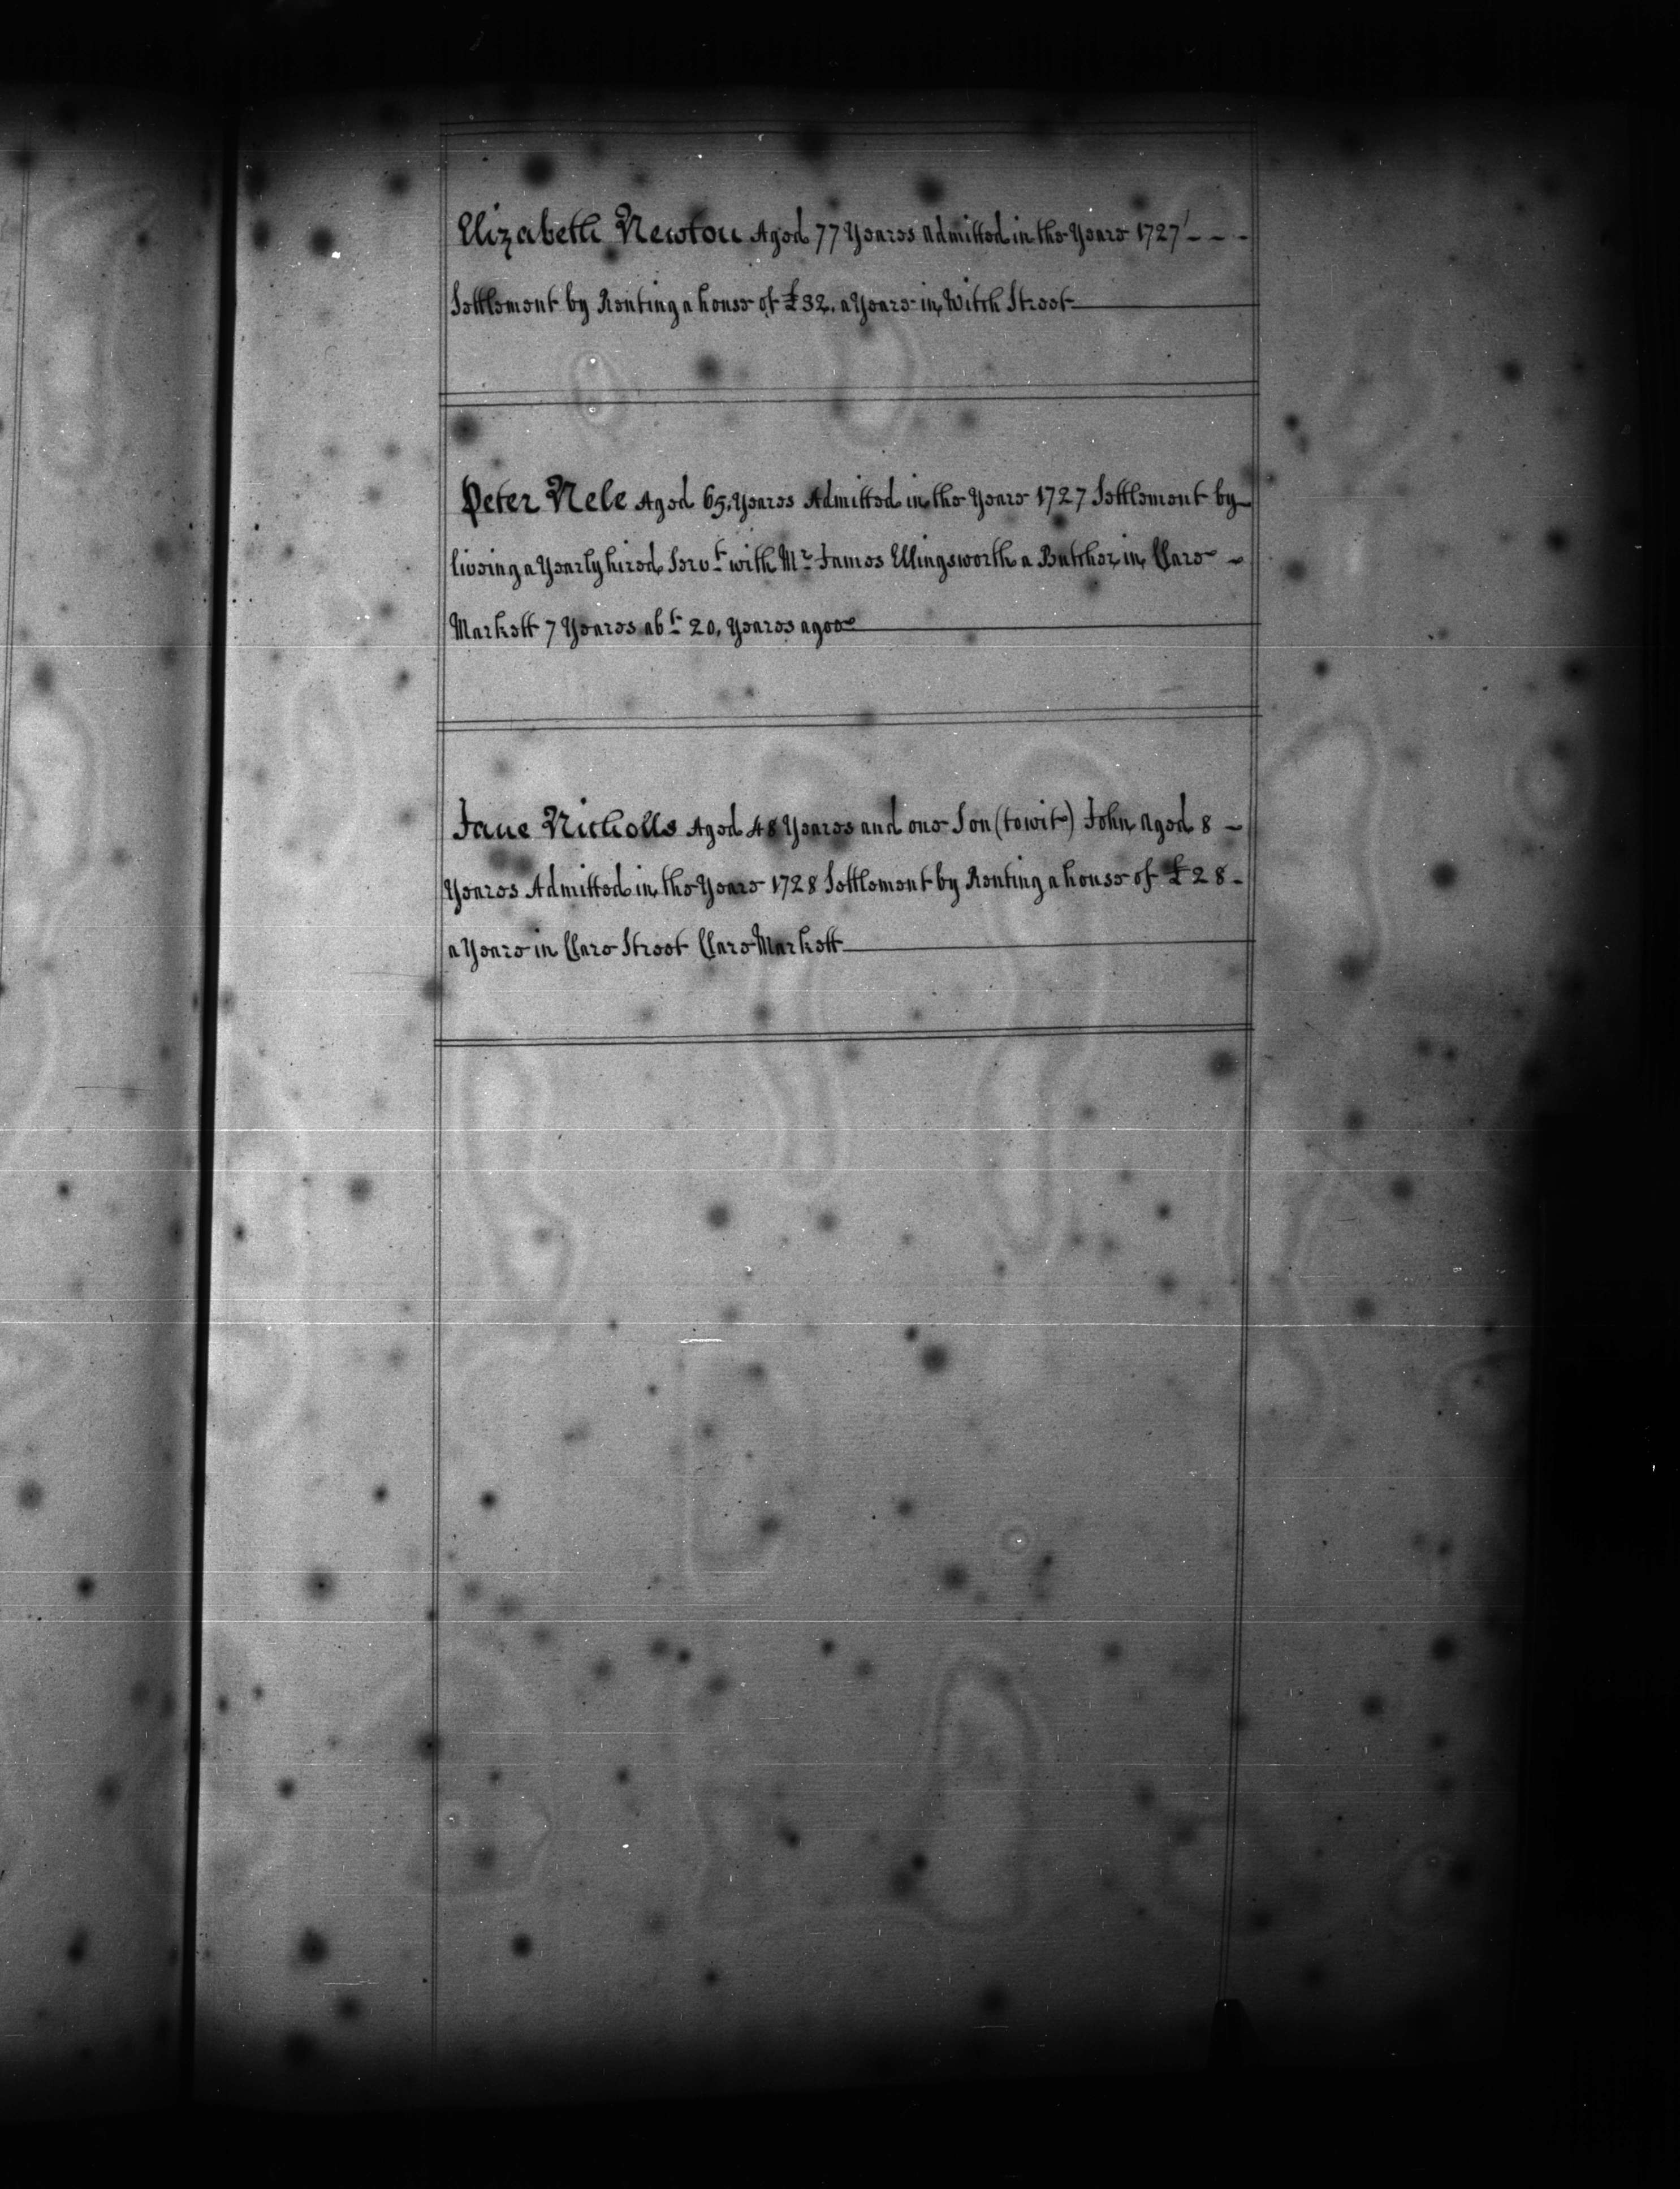 Elizabeth Newton Aged 77 Yeares Admitted in the Yeare 1727 - - -
Settlement by Renting a house of £32. a Yeare in Witch Street
Peter Nele Aged 65. Yeares Admitted in the Yeare 1727 Settlement by
liveing a Yearly hired Servt with Mr James Ellingsworth a Butcher in Clare -
Markett 7 Yeares abt 20, Yeares agoe
Jane Nicholls Aged 48 Yeares and one Son (towit) John Aged 8 -
Yeares Admitted in the Yeare 1728 Settlement by Renting a house of £28 -
a Yeare in Clare Street Clare Markett